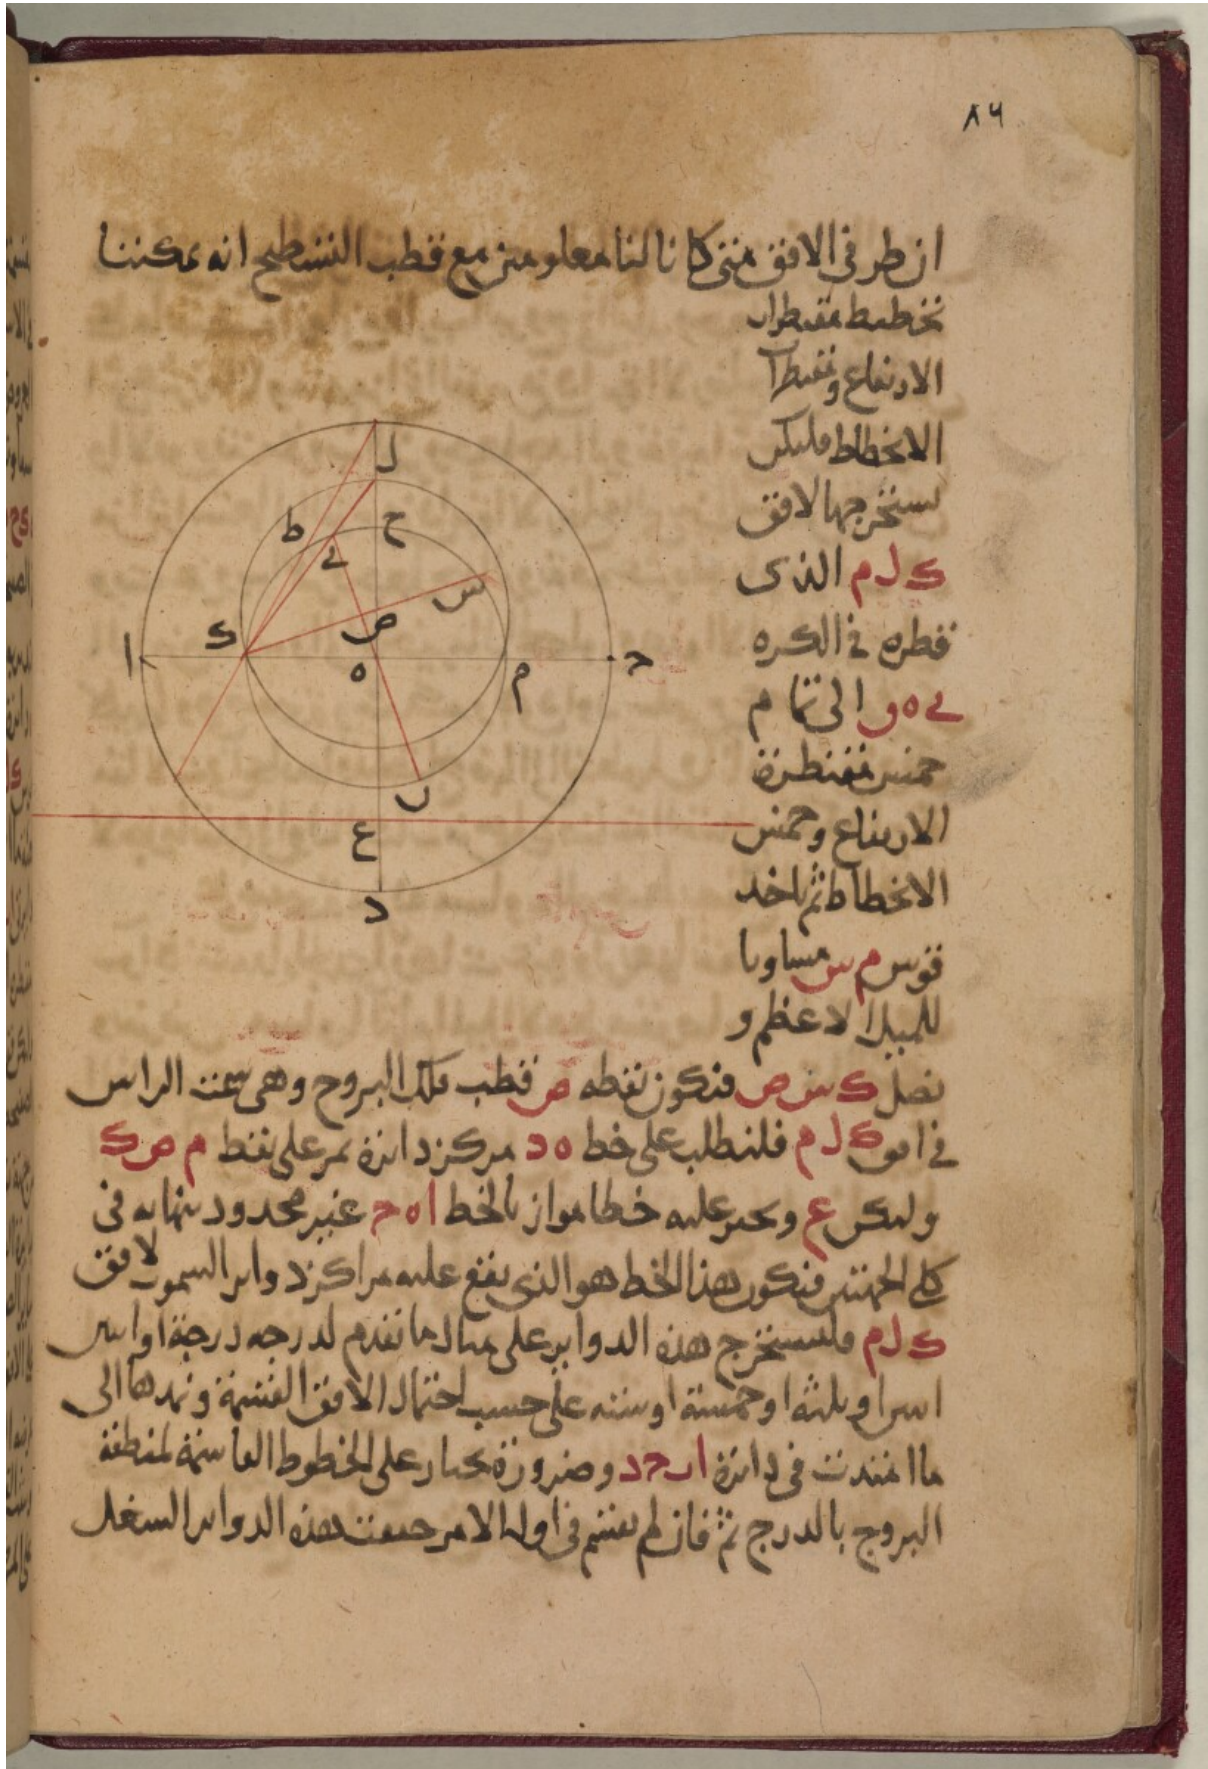 ٨٦
ان طرفى الافق متى كانا لنا معلومين مع قطب التسطيح انه يمكننا
تخطيط مقنطرات
الارتفاع ومقنطرات
الانحطاط فليكن
نستخرجها لافق
ك ل م الذى
قطره فى الكره
ى ه و الى تمام
خمس مقنطرة
الارتفاع وخمس
الانحطاط ثم ناخذ
قوس م س مساويا
للميل الاعظم و
نصل ك س ص فتكون نقطه ص قطب فلك البروج وهى سمت الراس
فى افق ك ل م فلنطلب على خط ه د مركز دائرة تمر على نقط م ص ك
وليكن ع ونجيز عليه خطا موازيا لخط ا ه ح غير محدود بنهايه فى
كلى الجهتين فيكون هذا الخط هو الذى يقع عليه مراكز دواير السموت لافق
ك ل م فلنستخرج هذه الدواير على مثال ما تقدم لدرجه درجة او اثنين
اثنين او ثلثه او خمسة او سته على حسب احتمال الافق القسمة ونمدها الى
ما امتدت فى دائرة ا ب ح د وضرورة تجتاز على الخطوط القاسمة لمنطقة
البروج بالدرج ثم فان لم تقسم فى اول الامر جعلت هذه الدواير
ل
ط
ح
ى
س
ك
ص
ا
ه
م
ح
ں
ع
د